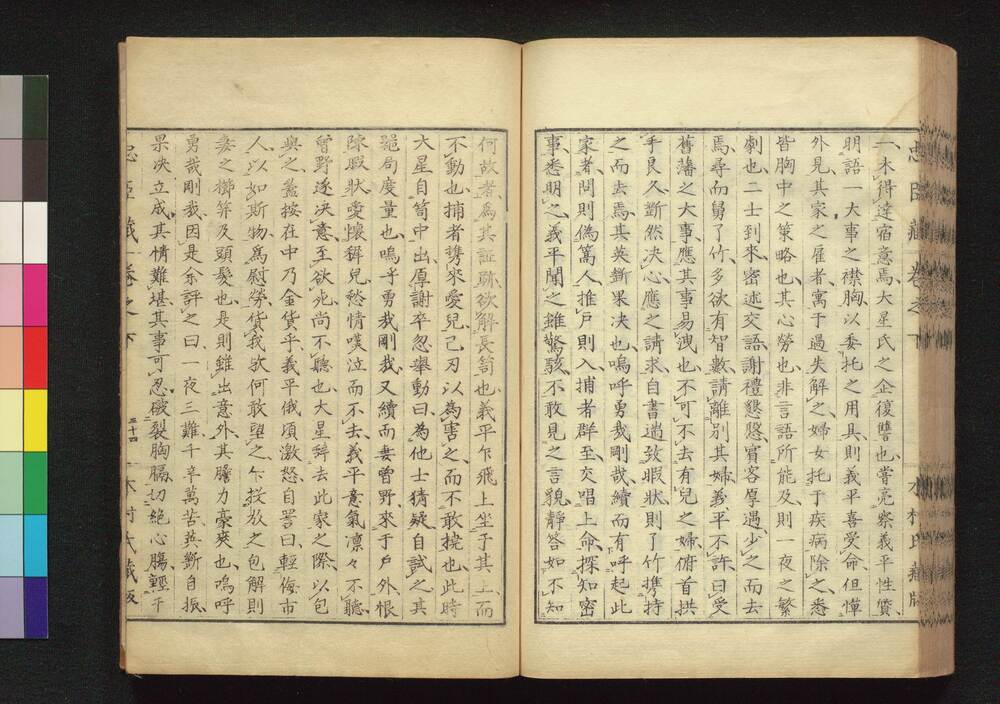 一木得達宿意焉大星氏之企復讐也嘗亮察義平性質
明語一大事之襟胸以委托之用具則義平喜受命但憚
外見其家之雇者寓于過失解之婦女托于疾病除之悉
皆胸中之策略也其心勞也非言語所能及則一夜之繁
劇也二士到來密述交語謝禮懇慇賓客厚遇少之而去
焉尋而舅了竹多欲有智數請離別其婦義平不許曰受
舊藩之大事應其事易洩也不可不去有兒之婦俯首拱
手良久斷然决心應之請求自書遄致暇狀則了竹携持
之而去焉其英斷果决也嗚呼勇哉剛哉續而有呼起此
家者問則偽篤人推戶則入捕者群至交唱上命探知密
事悉明之義平聞之雖驚駭不敢見之言貌靜答如不知
何故者爲其証跡欲解長笥也義平乍飛上坐于其上而
不動也捕者携來愛兒己刃以為害之而不敢撓也此時
大星自笥中出厚謝卒忽舉動曰爲他士猜疑自試之其
局度量也嗚乎勇哉剛哉又續而妻曾野來于戶外恨
陳暇狀愛懷稺兒愁情嘆泣而不去義平意氣凛々不聽
曾野遂决意至欲死尚不聽也大星辞去此家之際以包
與之蓋按在中乃金貨乎義平俄頃激怒自詈曰輕侮市
人以如斯物爲慰勞貨我欲何敢望之乍投放之包解則
妻之擲笄及頭髮也是則雖出意外其膽力豪爽也嗚呼
勇哉剛哉因是余評之曰一夜三難千辛萬苦英斷自振
果决立成其情難堪其事可忍破裂胸膈切絶心膓輕于
忠臣藏 卷之下
三十四
木村氏藏版